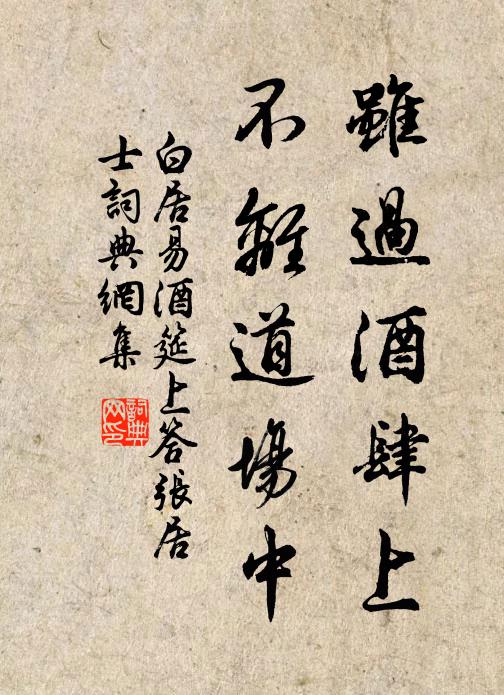 雖過酒肆上
不離道場中
白居易酒筵上答張居
士詞典網集
詞典
网印